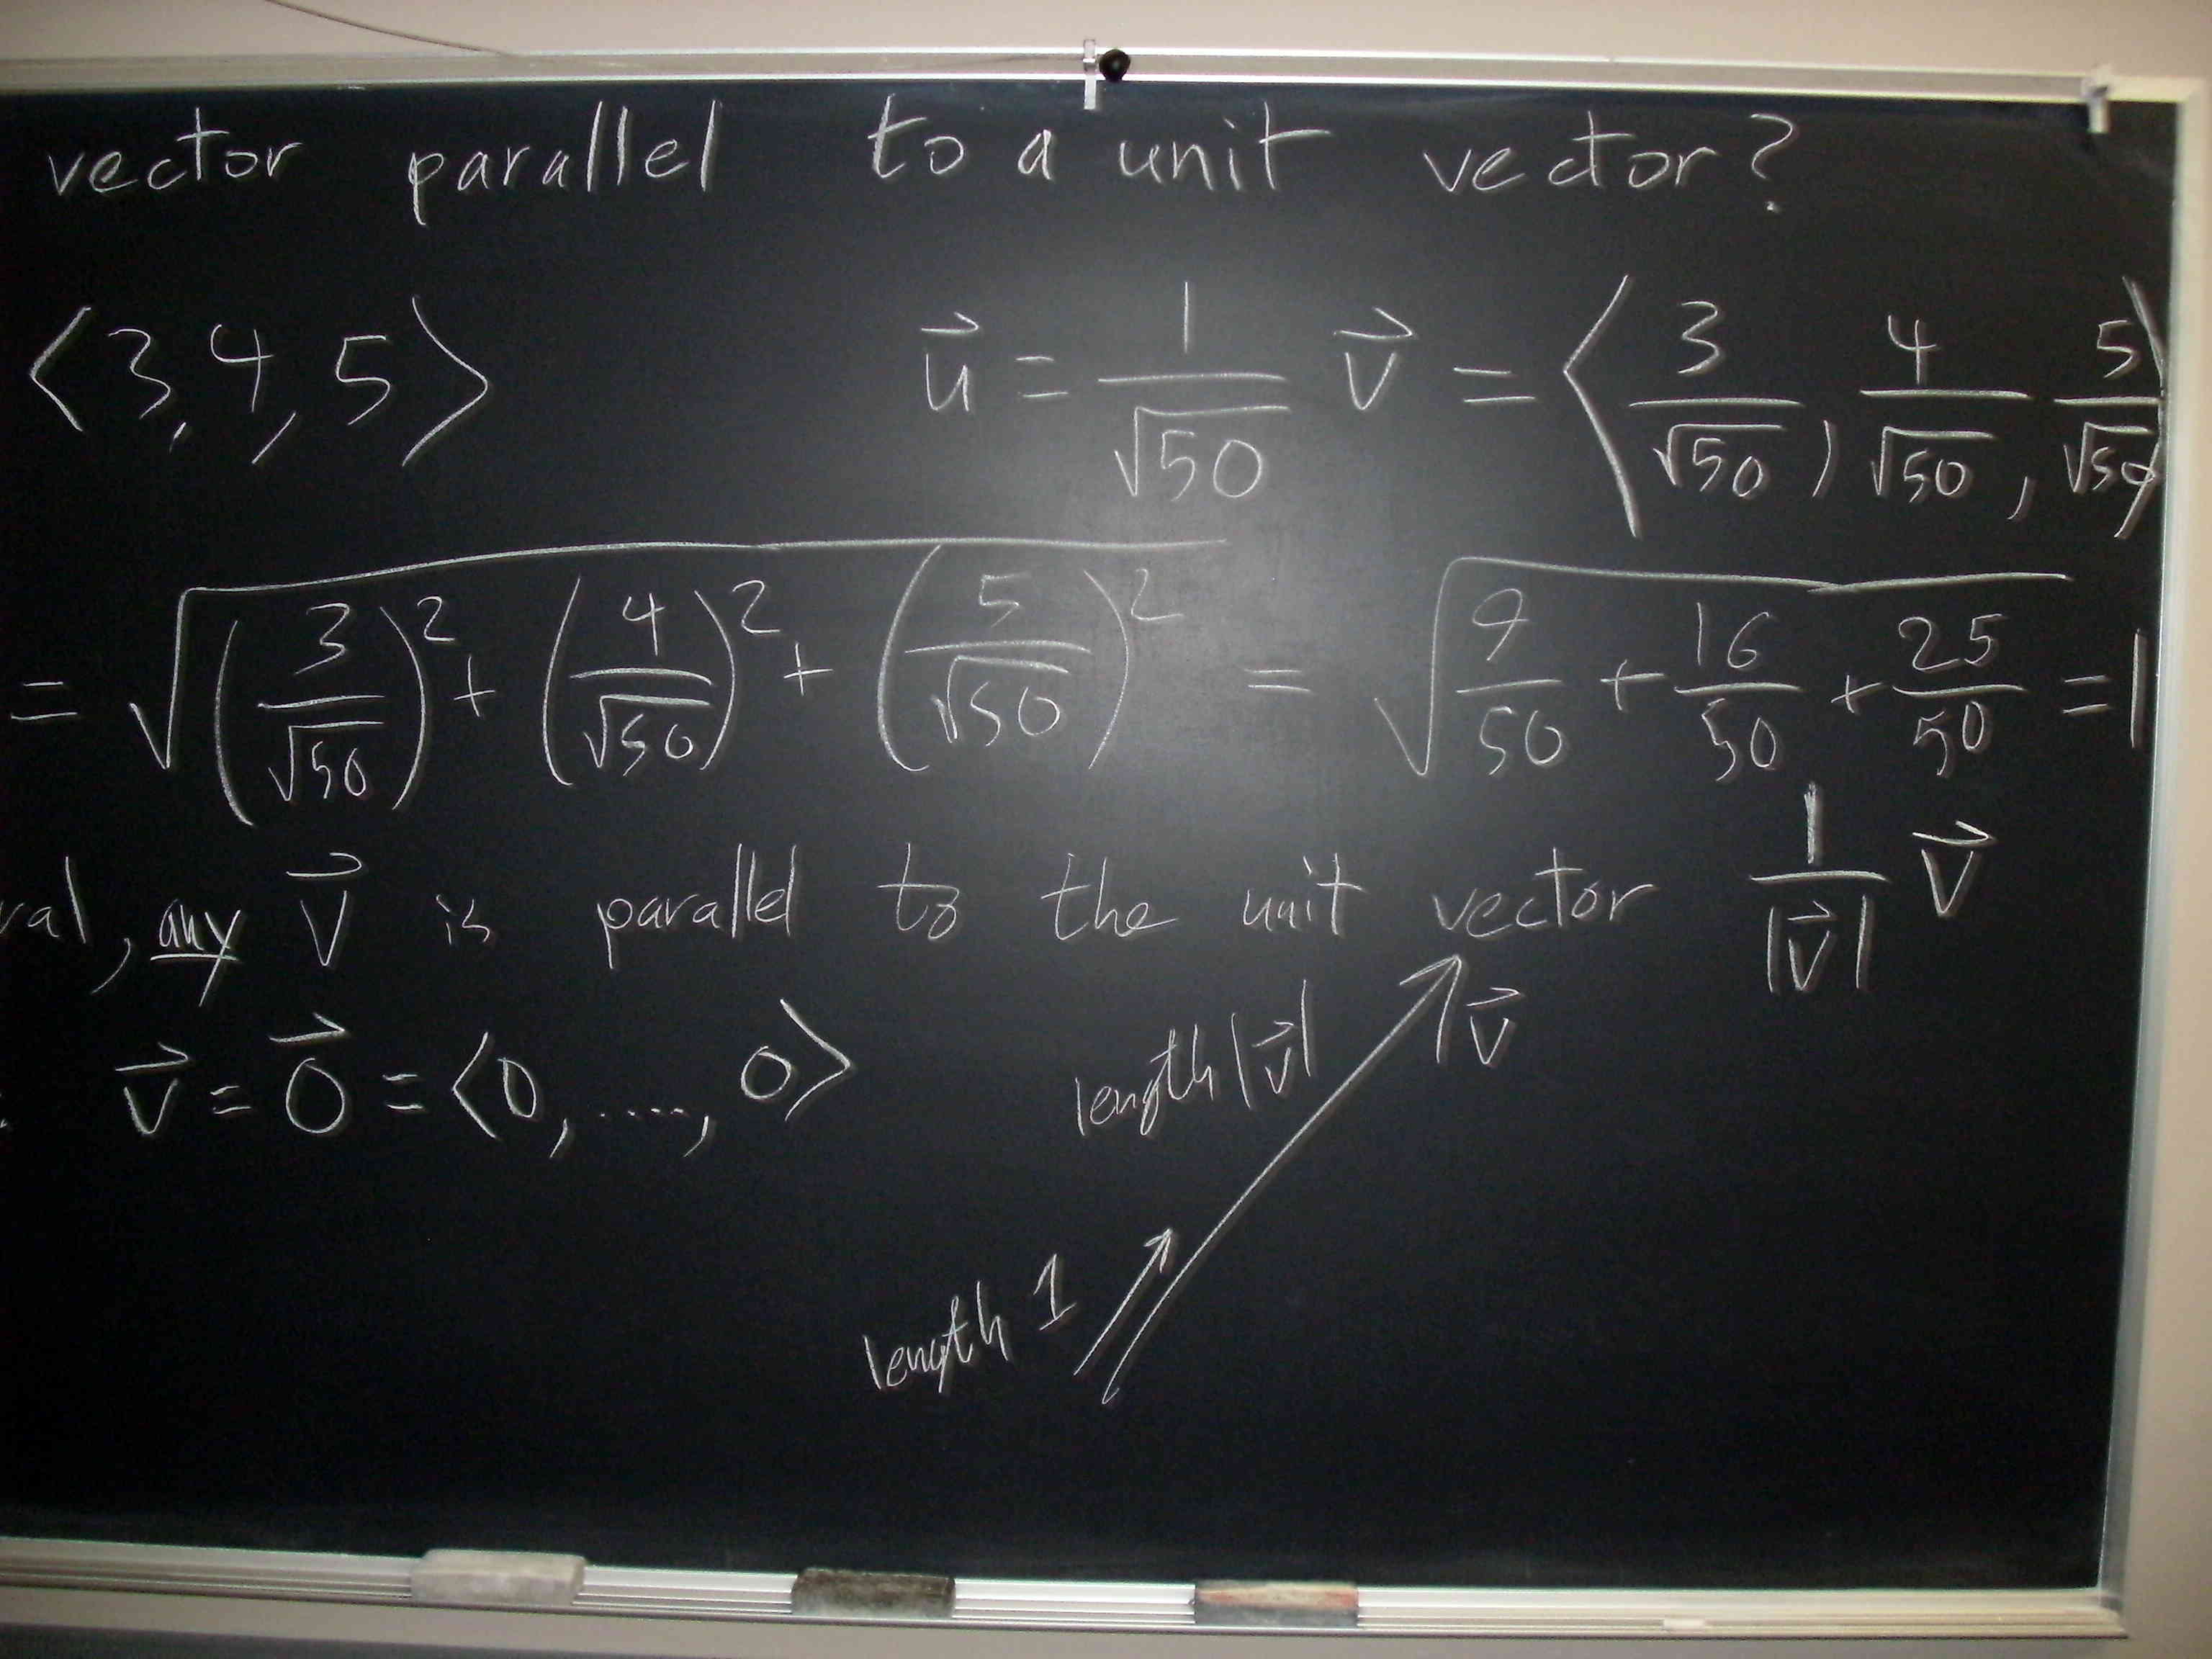 vector parallel to a unit vector?
<3, 4, 5> u⃗ = 1/√50 v⃗ = <3/√50, 4/√50, 5/√50>
= √((3/√50)² + (4/√50)² + (5/√50)²) = √(9/50 + 16/50 + 25/50) = 1
ral, any v⃗ is parallel to the unit vector 1/|v⃗| v⃗
: v⃗ = 0⃗ = <0, ...., 0>
length |v⃗| v⃗
length 1